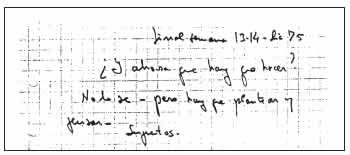 final semana 13-14-Dic 75
¿Y ahora que hay que hacer?
No lo se - pero hay que plantear y
pensar -
Sujetos.